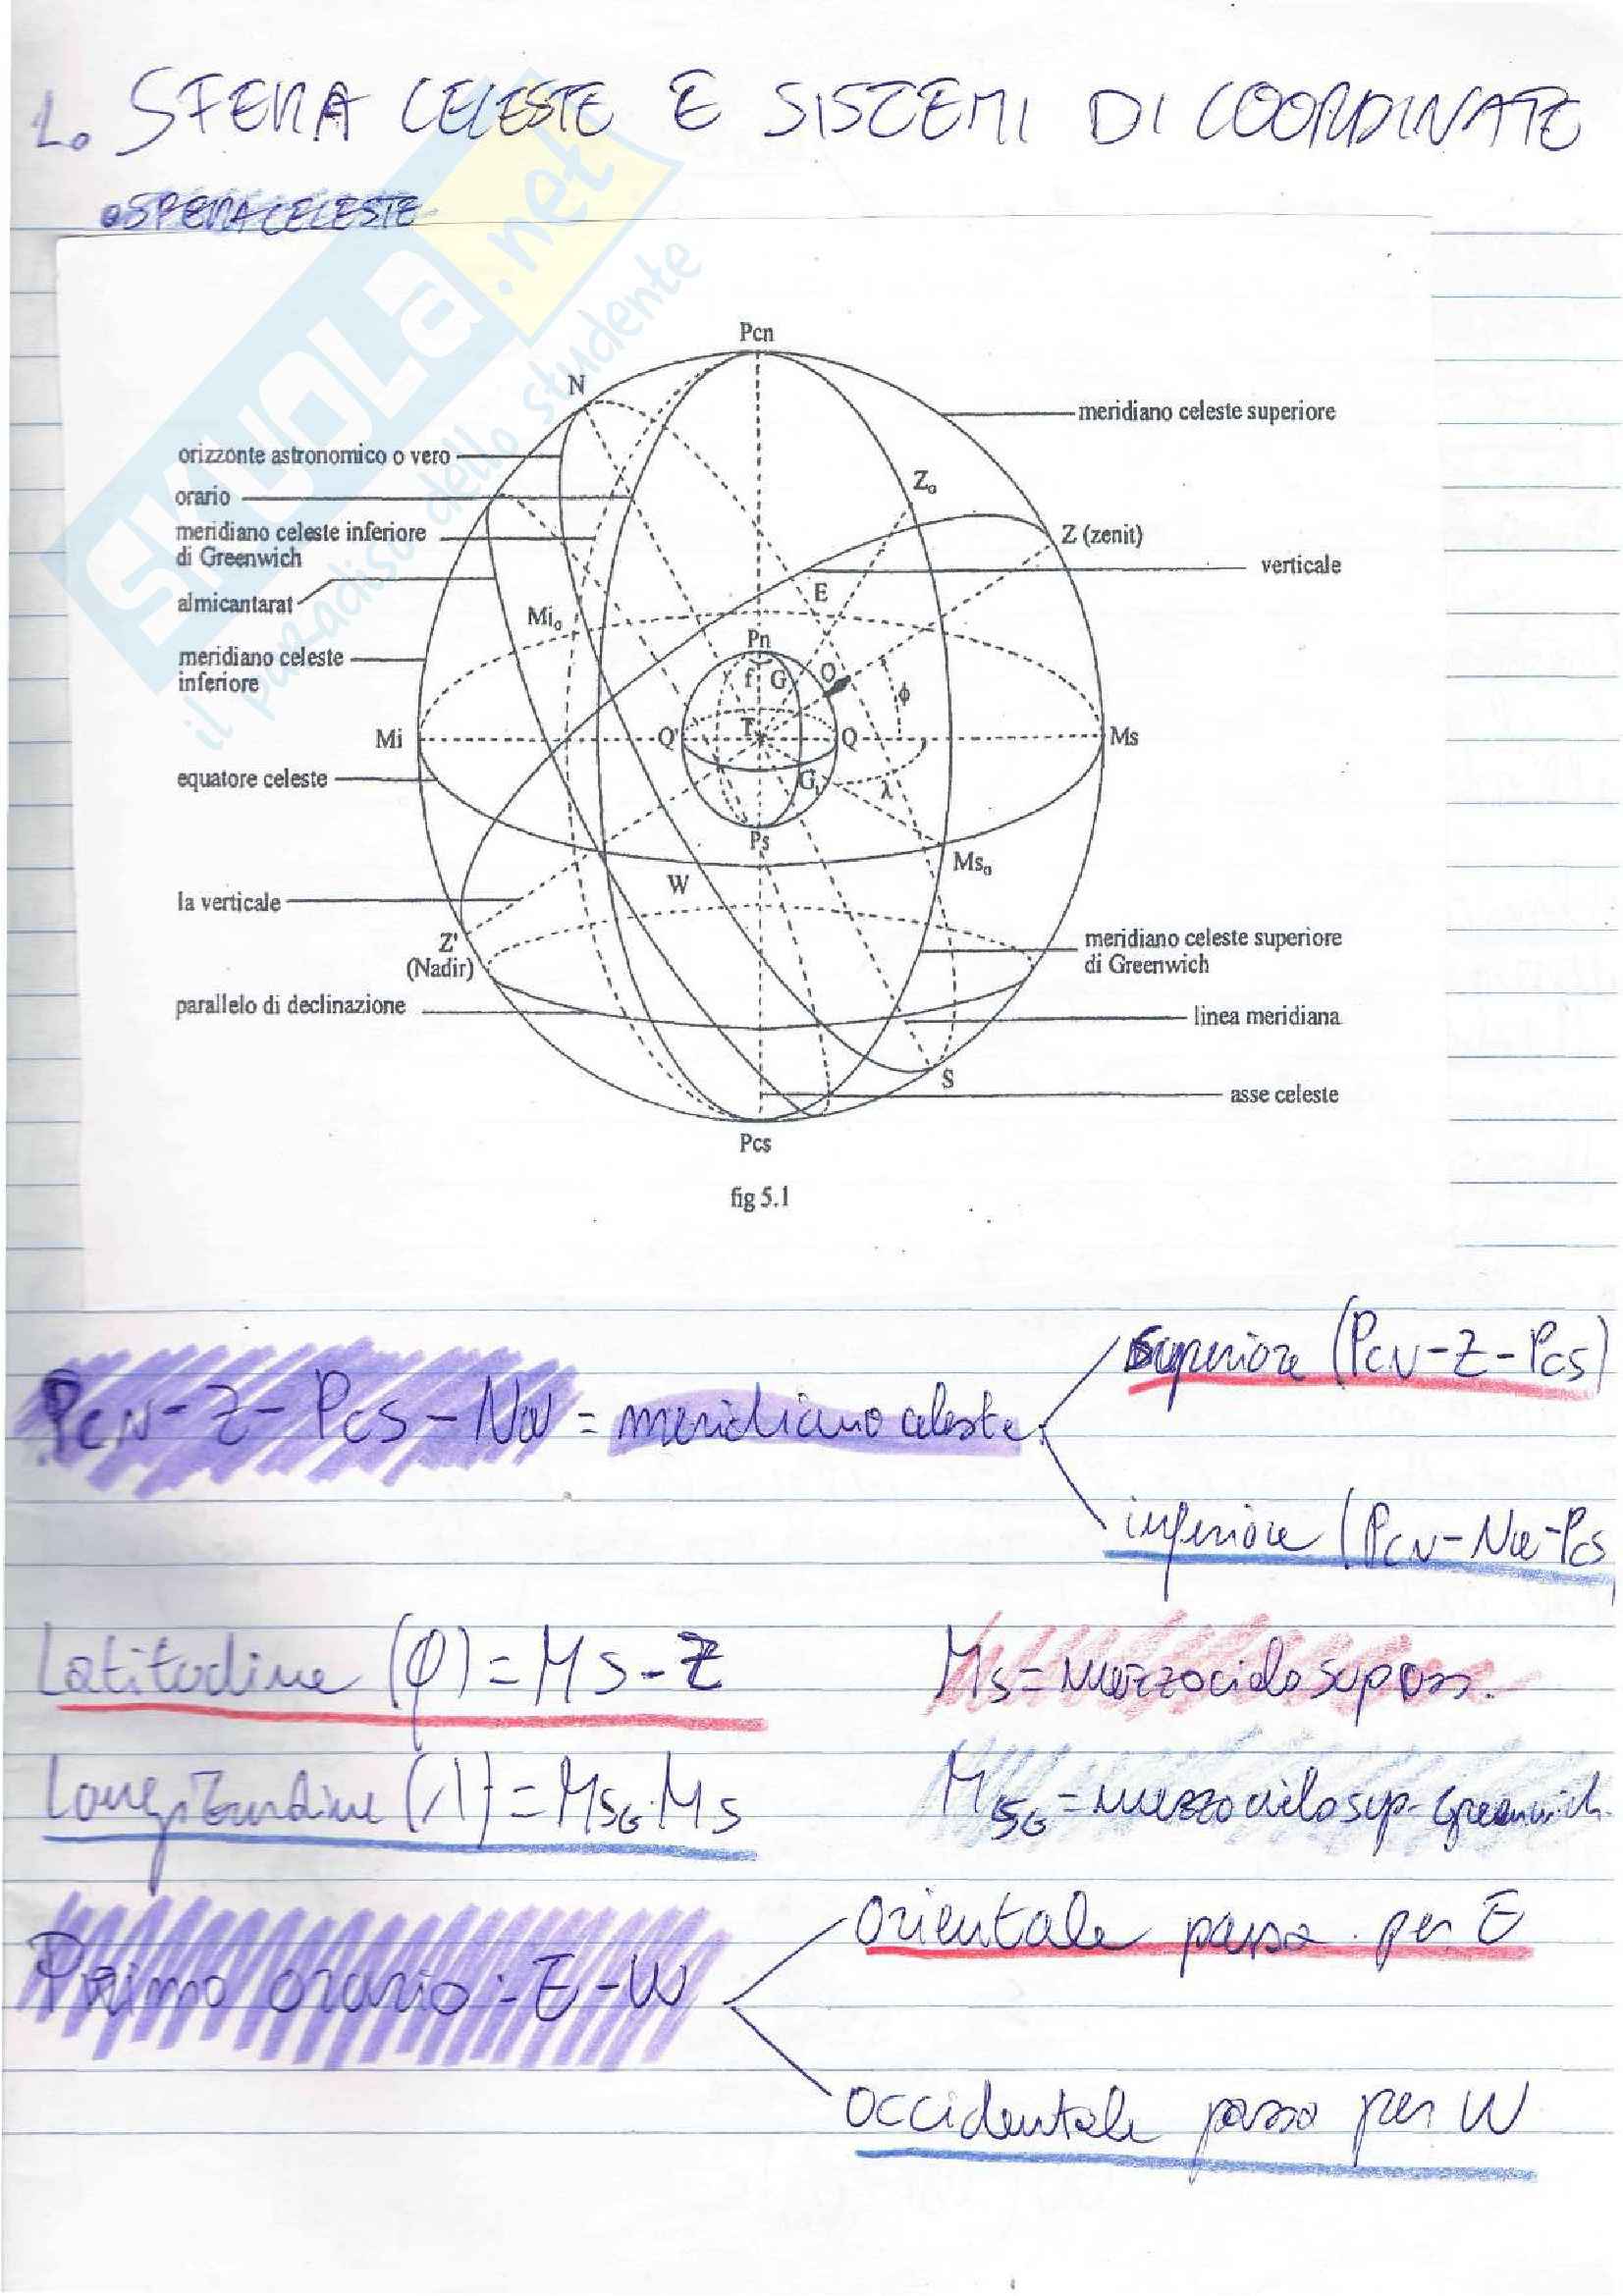 1. SFERA CELESTE E SISTEMI DI COORDINATE
SFERA CELESTE
SKUOLA.net
il paradiso dello studente
Pcn
N
meridiano celeste superiore
orizzonte astronomico o vero
Z₀
orario
meridiano celeste inferiore
di Greenwich
Z (zenit)
verticale
E
almicantarat
Mi₀
Pn
meridiano celeste
inferiore
f G O ϕ
Mi Q' T Q Ms
equatore celeste
G, λ
Ps
Ms₀
W
la verticale
Z'
(Nadir)
meridiano celeste superiore
di Greenwich
parallelo di declinazione
linea meridiana
S
asse celeste
Pcs
fig 5.1
superiore (PCN-Z-PCS)
PCN-Z-PCS-Na = meridiano celeste
inferiore (PCN-Na-PCS
Latitudine (φ) = MS-Z
MS = mezzocielo sup oss.
Longitudine (λ) = MSG.MS
MSG = mezzocielo sup. Greenwich
orientale passa per E
Primo orario: E-W
occidentale passa per W